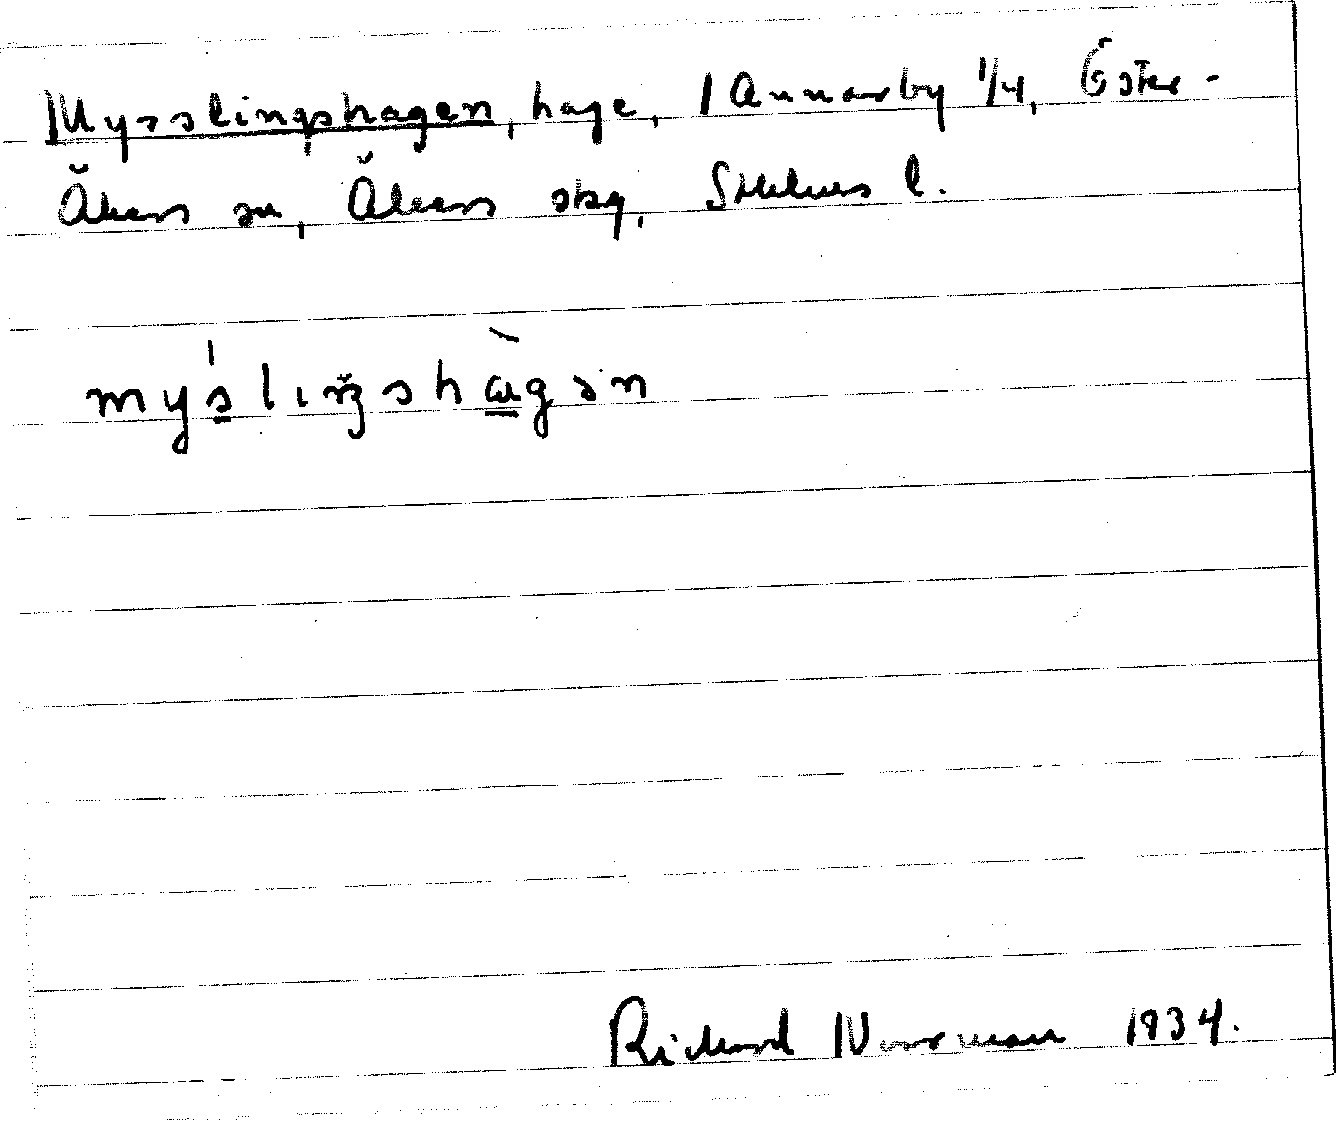 Mysslingshagen, hage, 1 Annarby 1/4, Öster-
Åkers sn, Åkers skg, Sthlms l.
mys̲lıŋshàgən
Richard Norrman 1934.